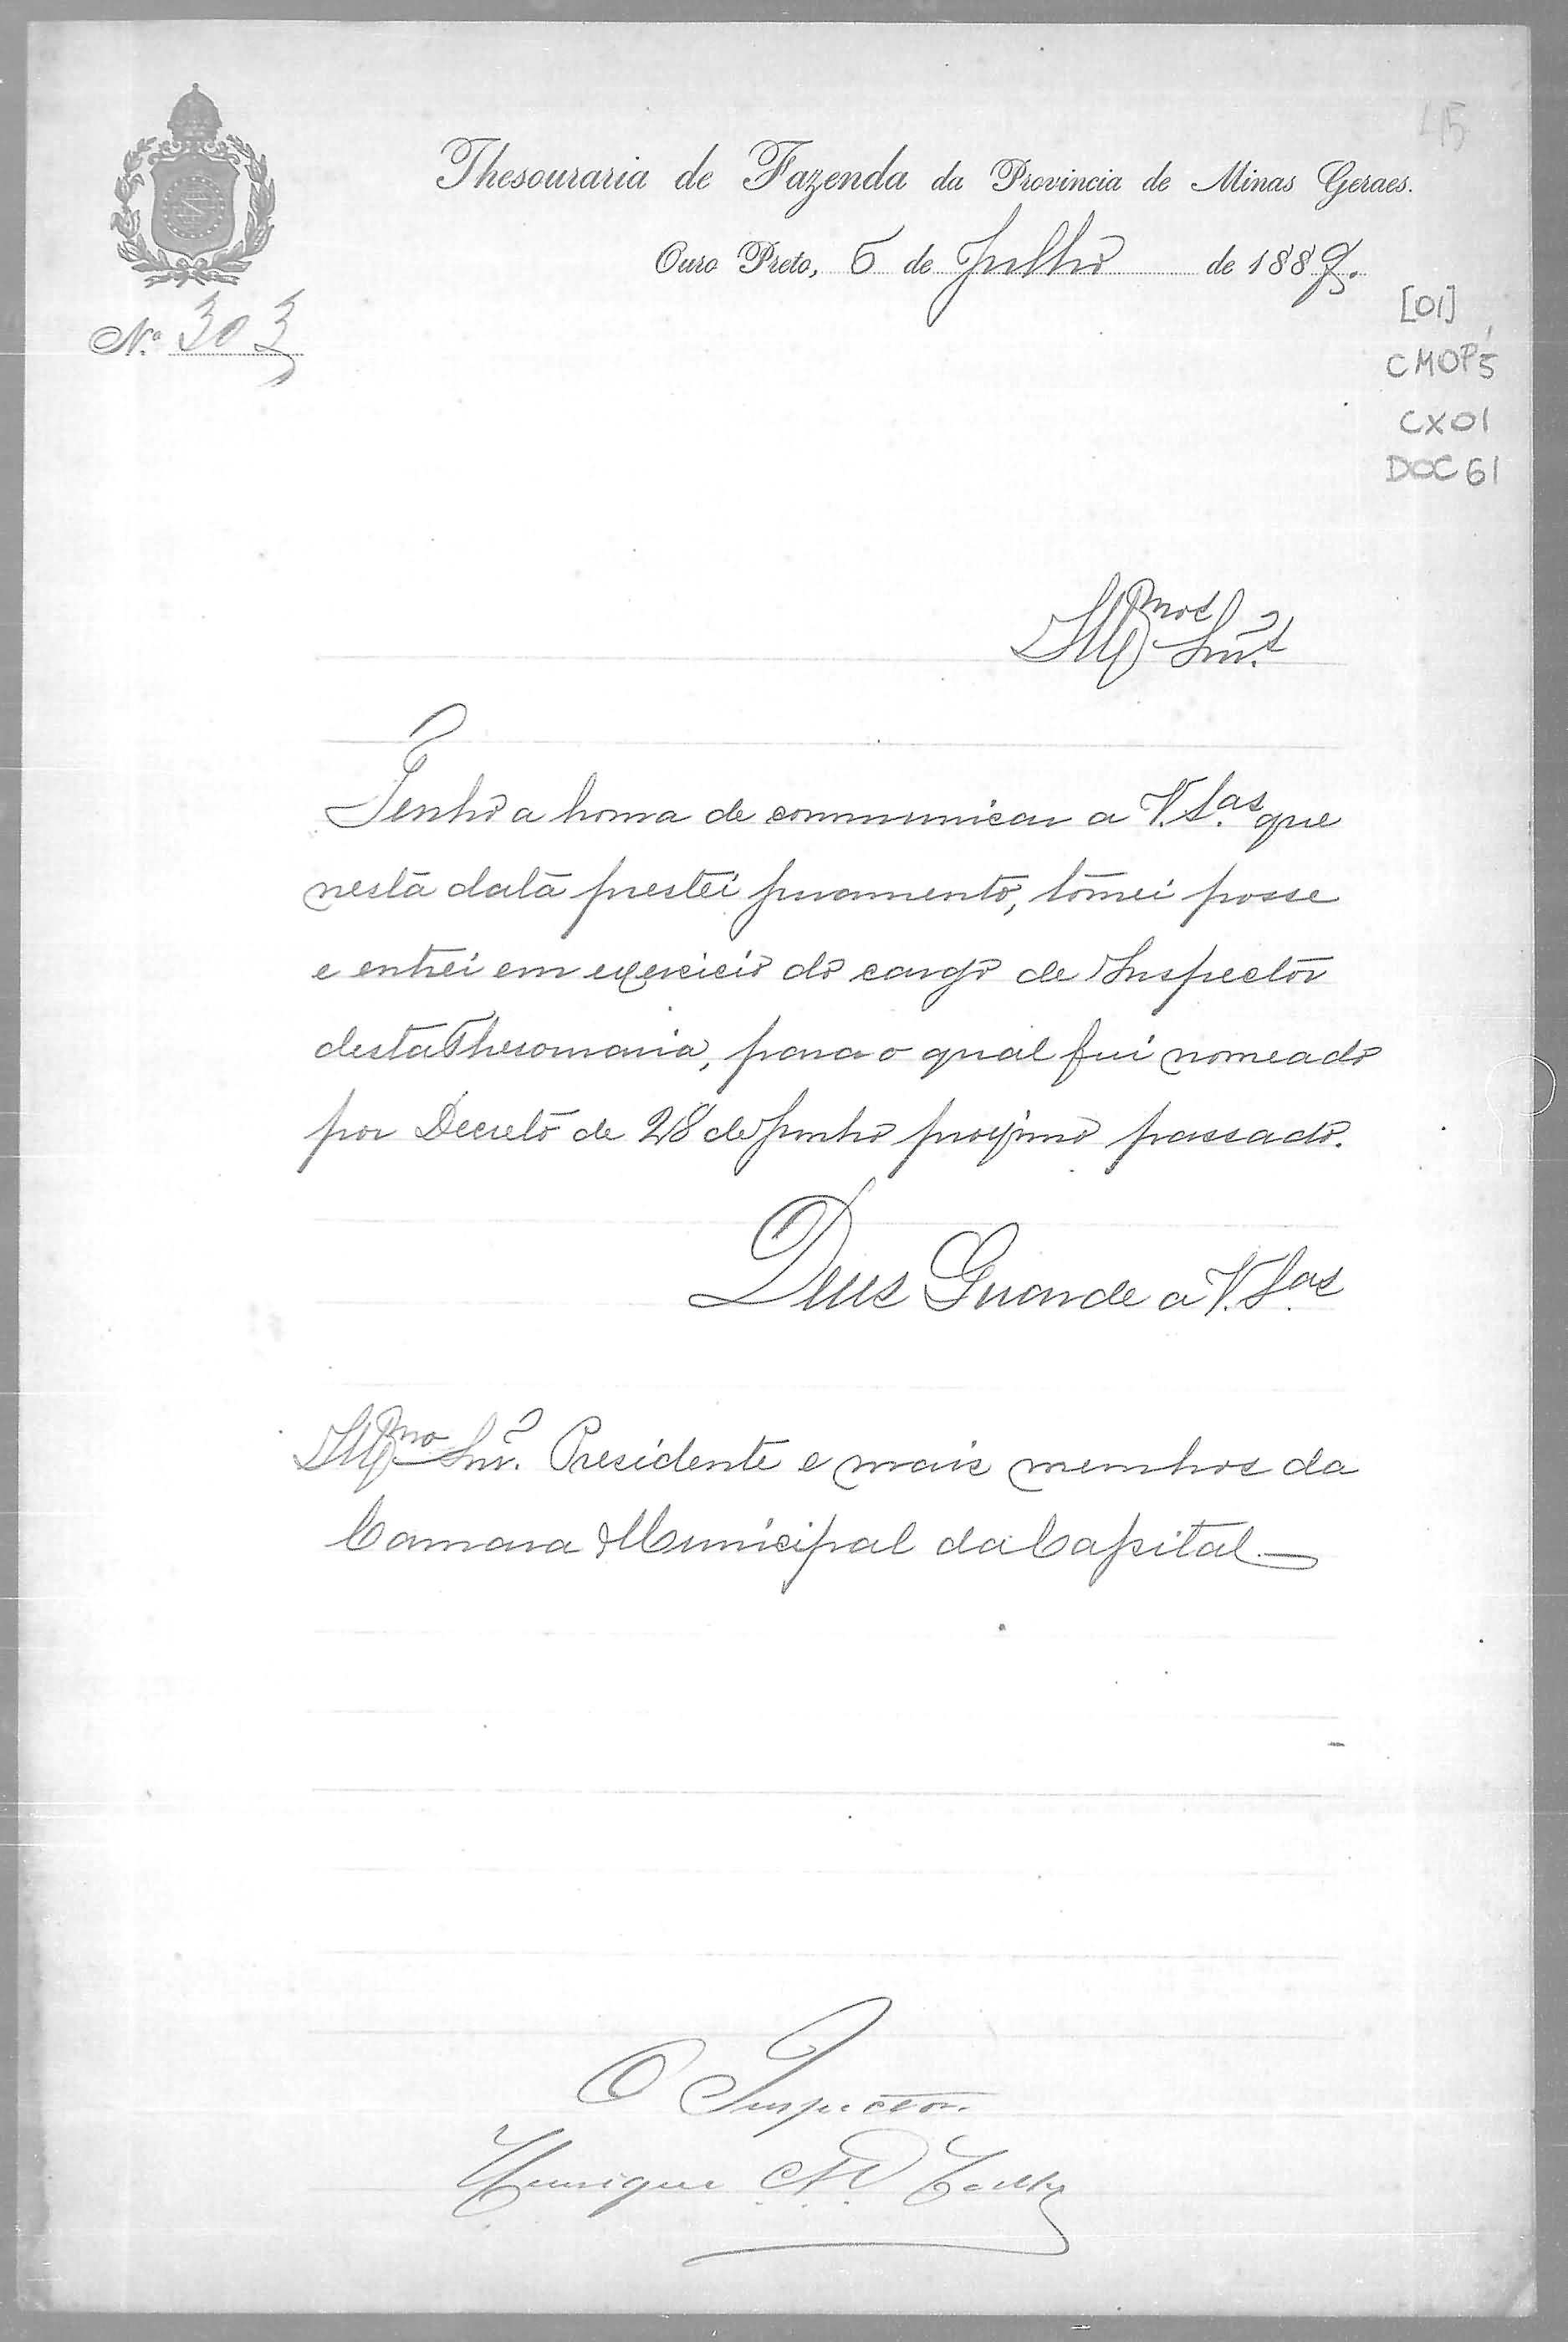 45
Thesouraria de Fazenda da Provincia de Minas Geraes.
Ouro Preto, 6 de Julho de 1889.
N.º 303
[01]
CMOP5
CX01
DOC 61
Ill.mos Snr.s
Tenho a honra de communicar a V. S.as que
nesta data prestei juramento, tomei posse
e entrei em exercicio do cargo de Inspector
desta Thesouraria, para o qual fui nomeado
por Decreto de 28 de Junho proximo passado.
Deus Guarde a V. S.as
Ill.mo Snr. Presidente e mais membros da
Camara Municipal da Capital.
O Inspector
Henrique